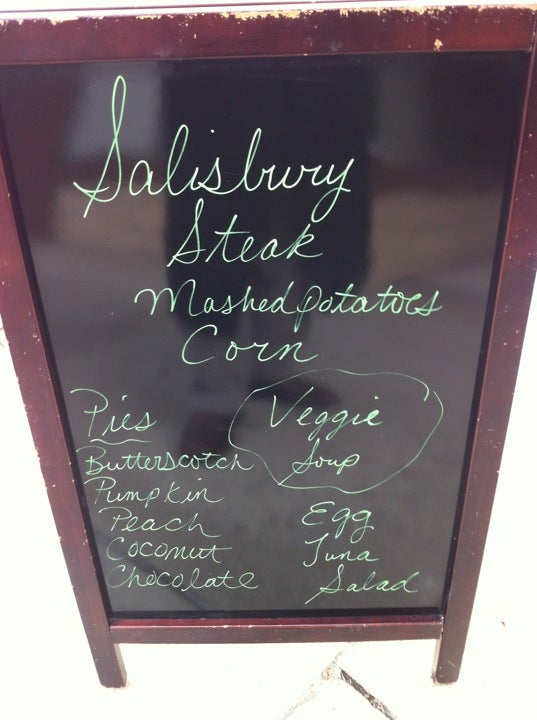 Salisbury
Steak
Mashed potatoes
Corn
Pies
Butterscotch
Pumpkin
Peach
Coconut
Chocolate
Veggie
Soup
Egg
Tuna
Salad